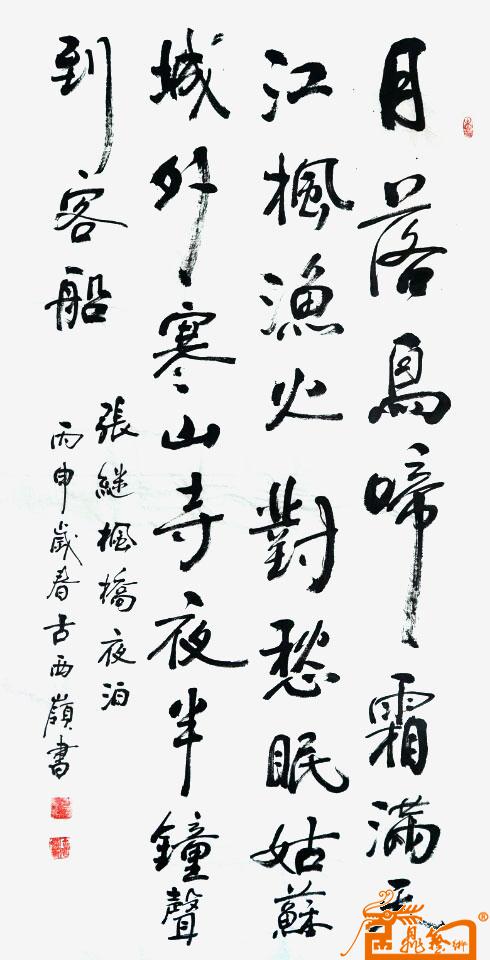 月落烏啼霜滿天
江楓漁火對愁眠姑蘇
城外寒山寺夜半鐘聲
到客船
張繼楓橋夜泊
丙申歲春古西嶺書